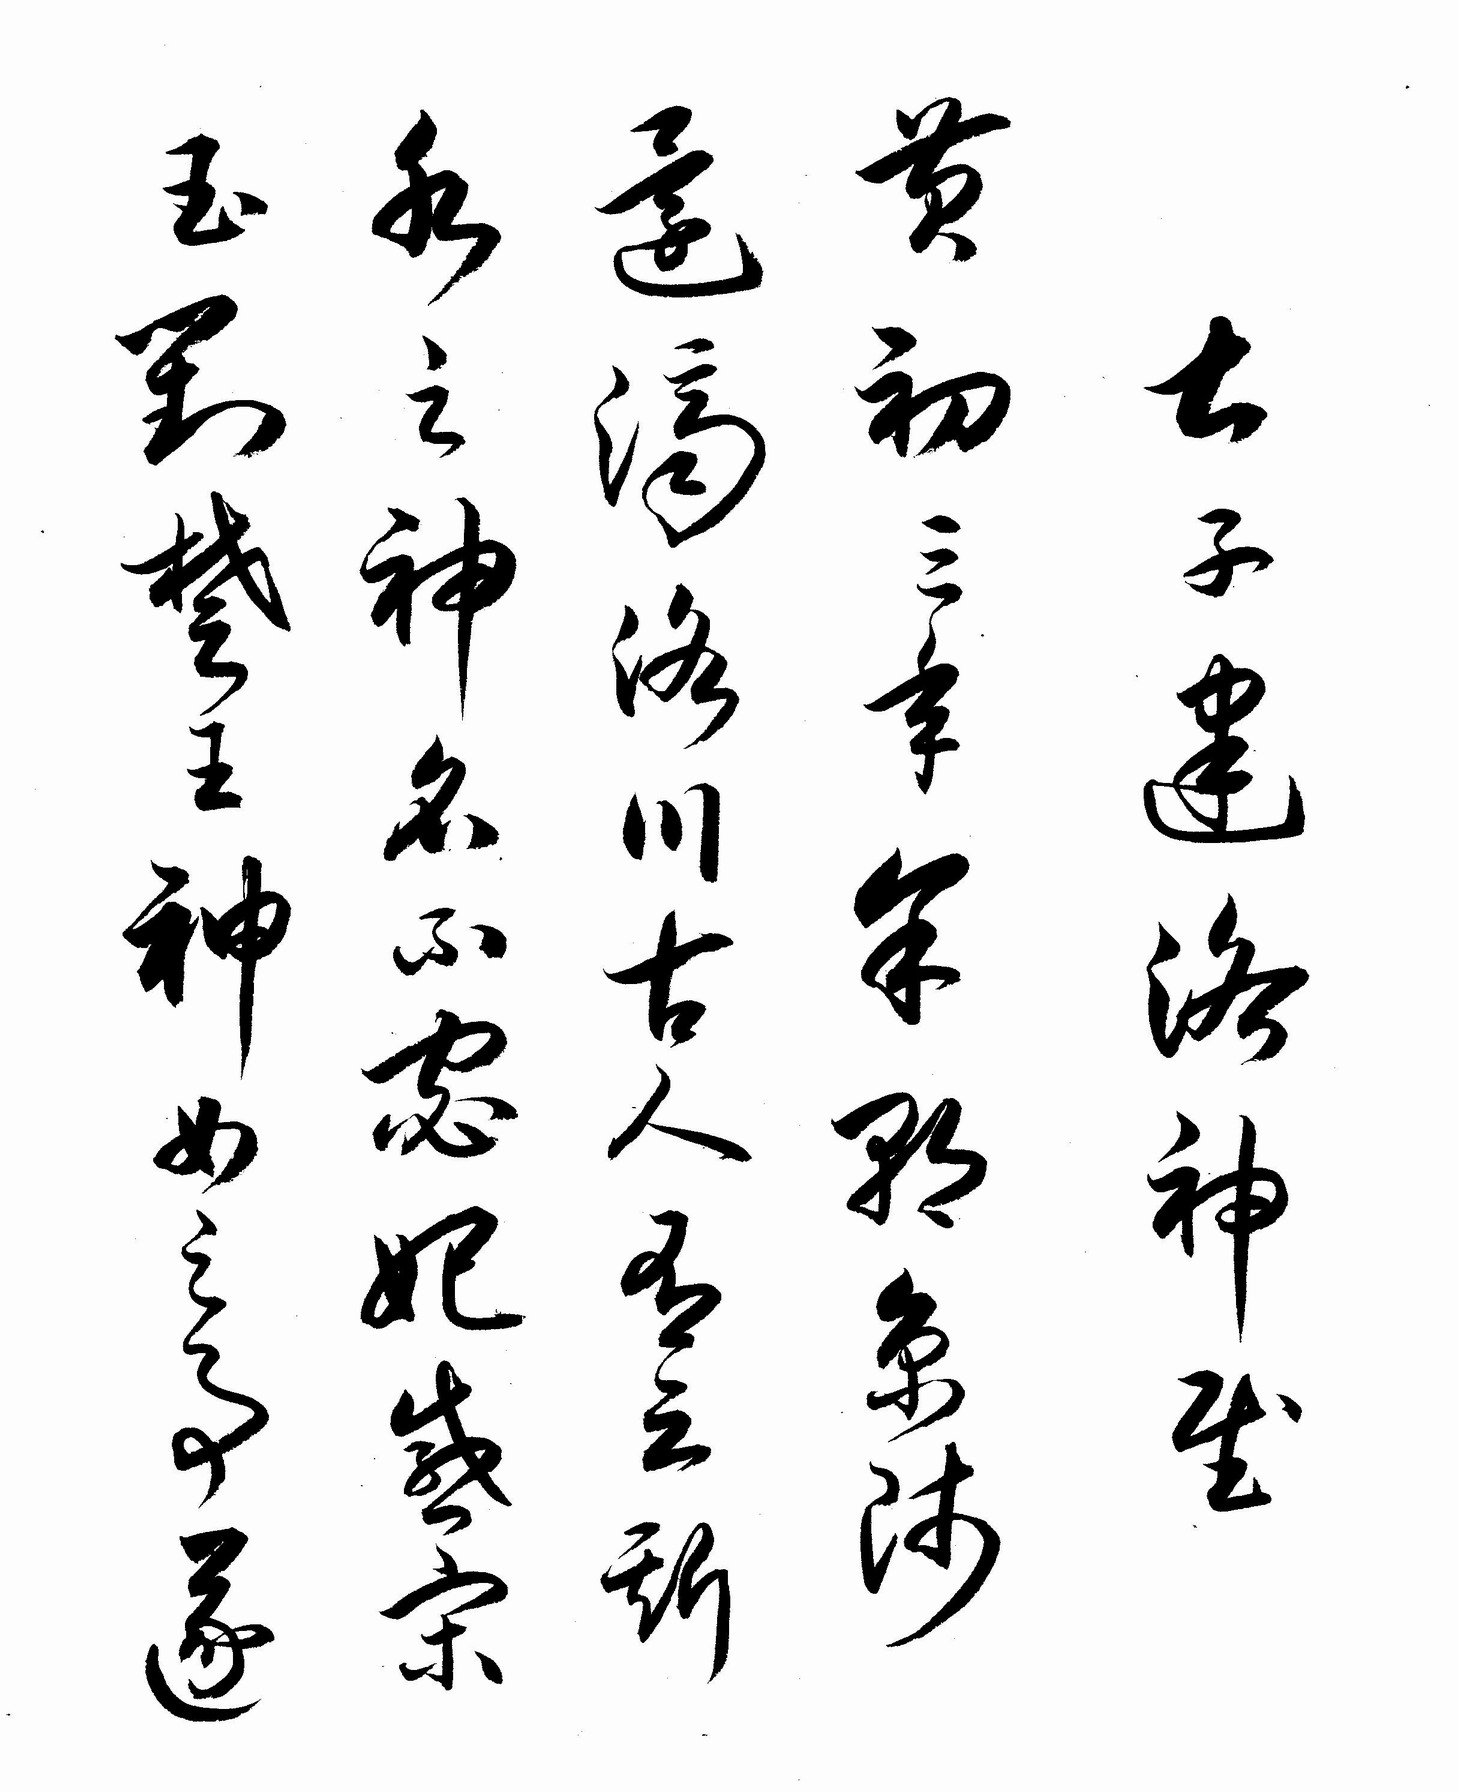 曹子建洛神賦
黄初三年余朝京師
還濟洛川古人有言斯
水之神名曰宓妃感宋
玉對楚王神女之事遂